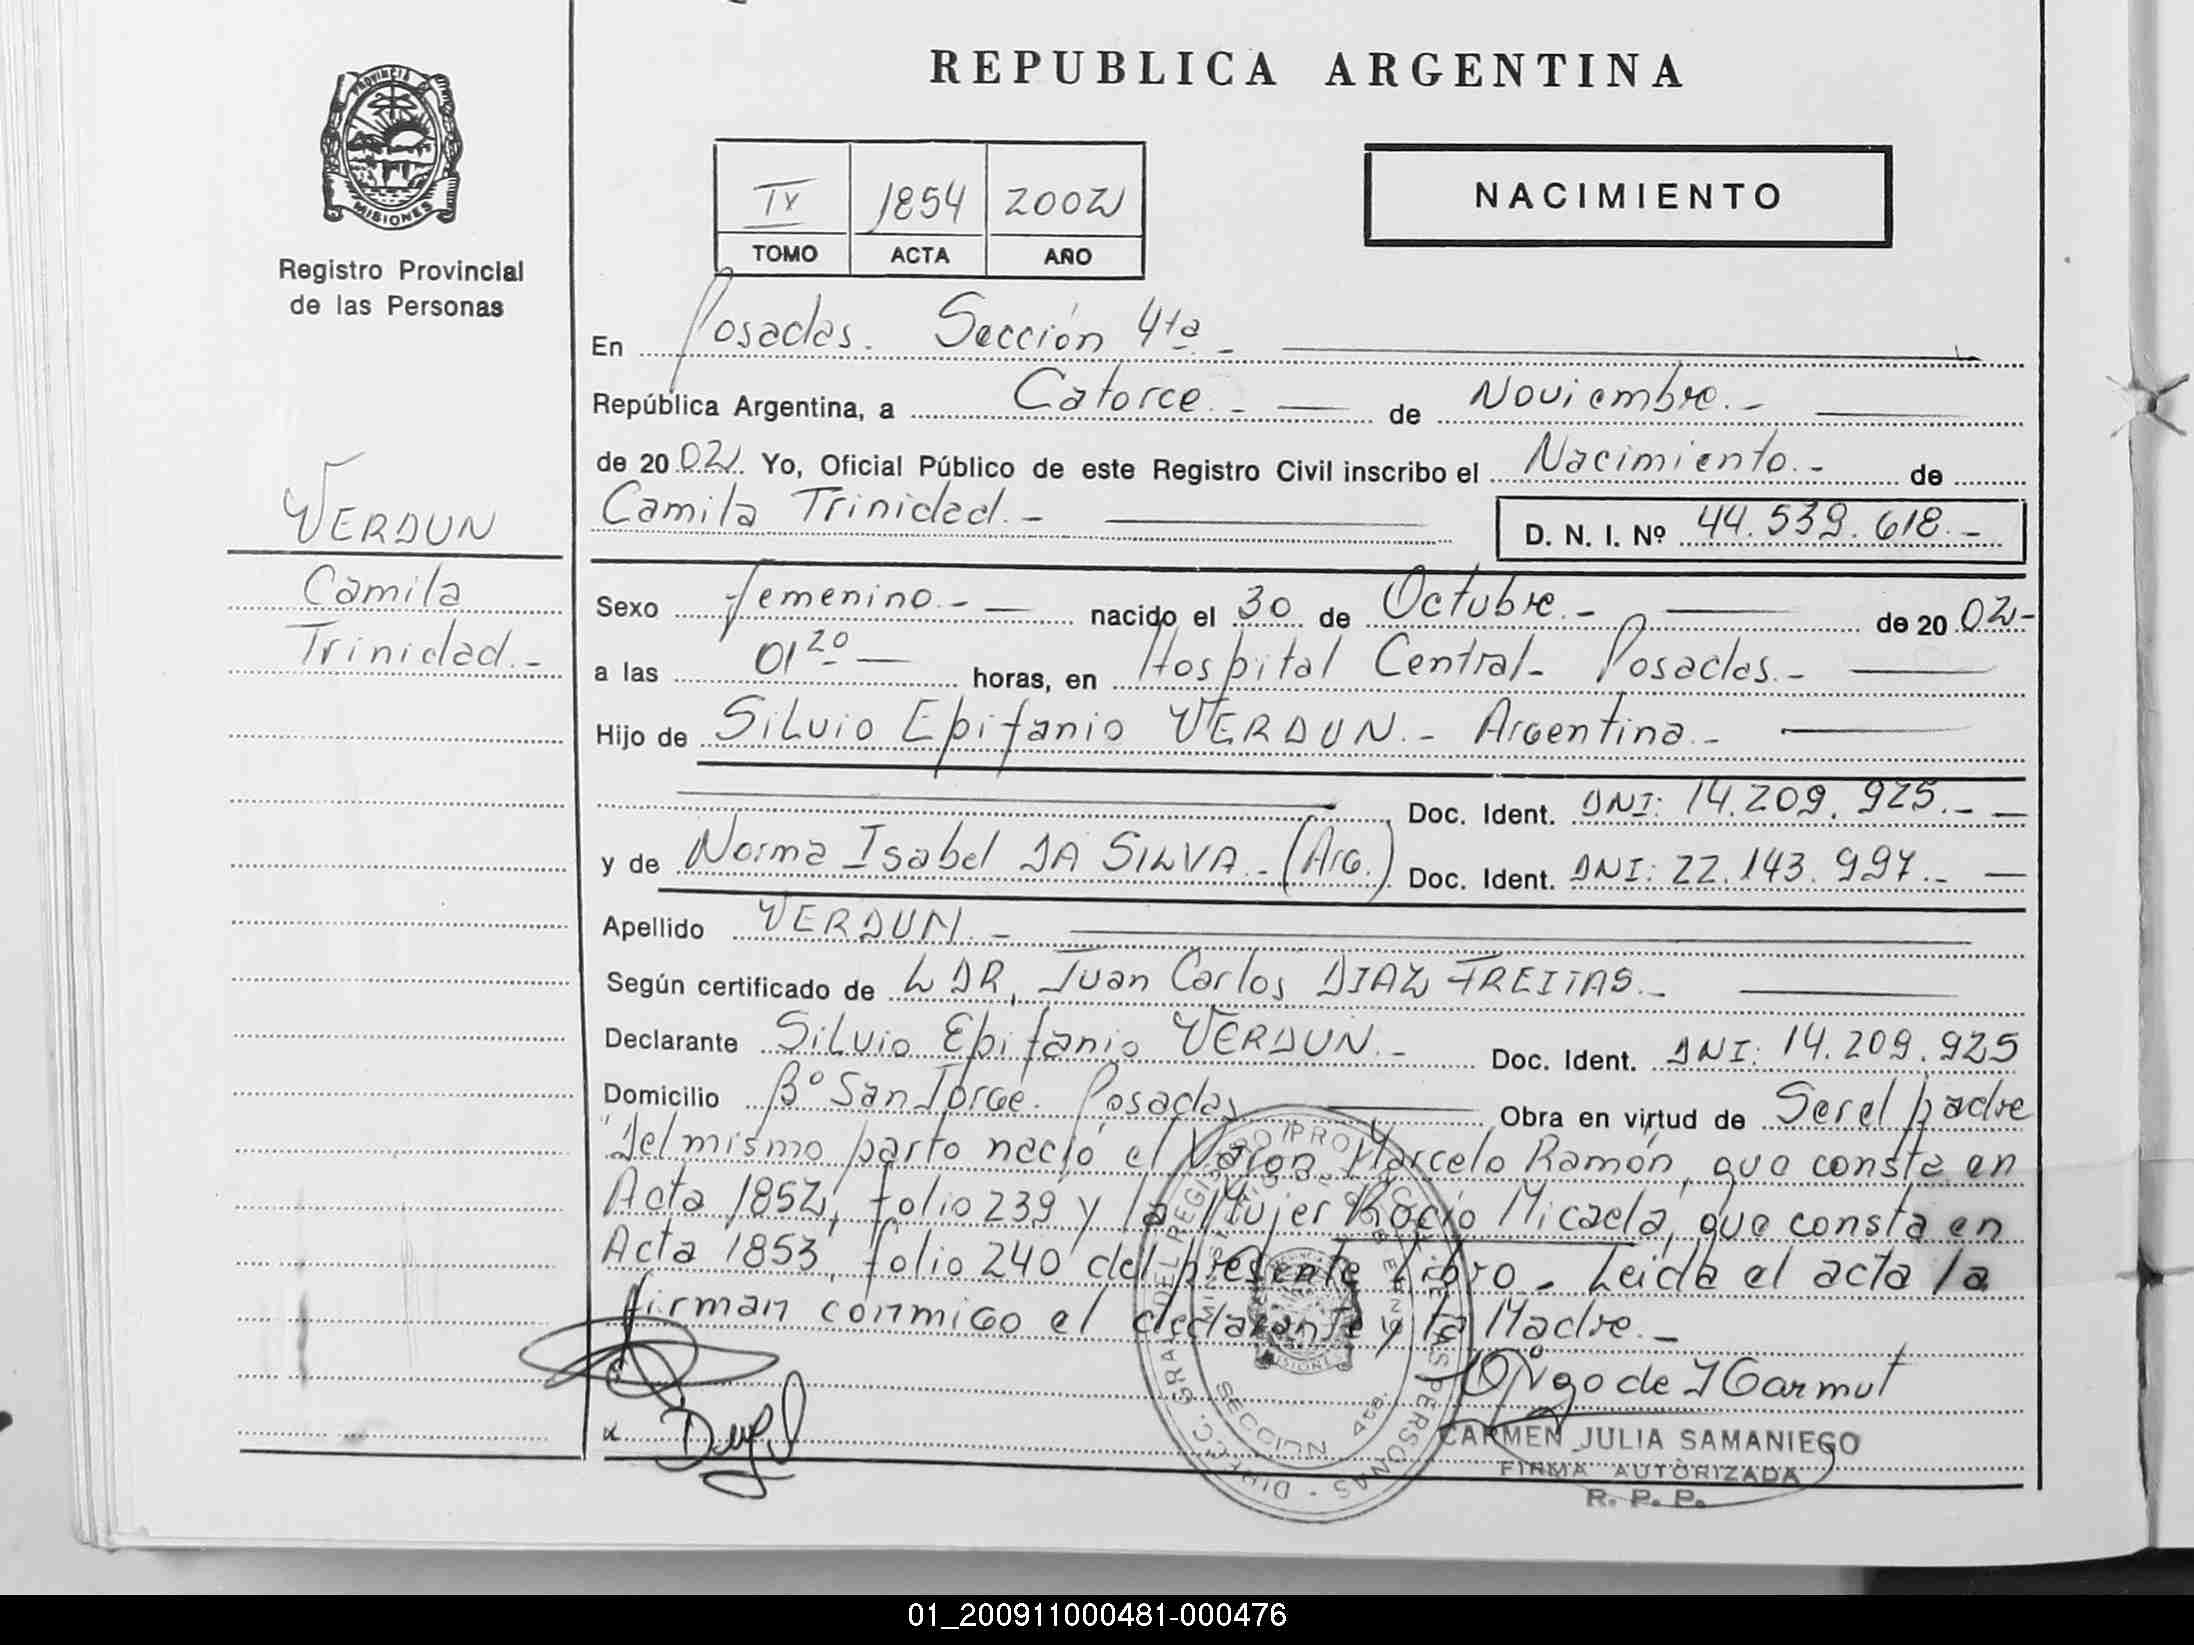 REPUBLICA ARGENTINA
PROVINCIA
MISIONES
Registro Provincial
de las Personas
IV 1854 2002
TOMO ACTA AÑO
NACIMIENTO
En Posadas. Sección 4ta.-
República Argentina, a Catorce.- de Noviembre.-
de 2002. Yo, Oficial Público de este Registro Civil inscribo el Nacimiento.- de
Camila Trinidad.- D. N. I. Nº 44.539.618.-
VERDUN
Camila
Trinidad.-
Sexo femenino.- nacido el 30 de Octubre.- de 2002-
a las 01 20 horas, en Hospital Central- Posadas.-
Hijo de Silvio Epifanio VERDUN.- Argentina.-
Doc. Ident. DNI: 14.209.925.-
y de Norma Isabel DA SILVA.- (Arg.) Doc. Ident. DNI: 22.143.997.-
Apellido VERDUN.-
Según certificado de DR, Juan Carlos DIAZ FREITAS.-
Declarante Silvio Epifanio VERDUN.- Doc. Ident. DNI: 14.209.925
Domicilio Bº San Jorge. Posadas Obra en virtud de Ser el padre
"Del mismo parto nació el Varon Marcelo Ramón, que consta en
Acta 1852, folio 239 y la Mujer Rocío Micaela, que consta en
Acta 1853, folio 240 del presente Libro.- Leida el acta la
firman conmigo el declarante y la Madre.-
CARMEN JULIA SAMANIEGO
FIRMA AUTORIZADA
R. P. P.
01_200911000481-000476